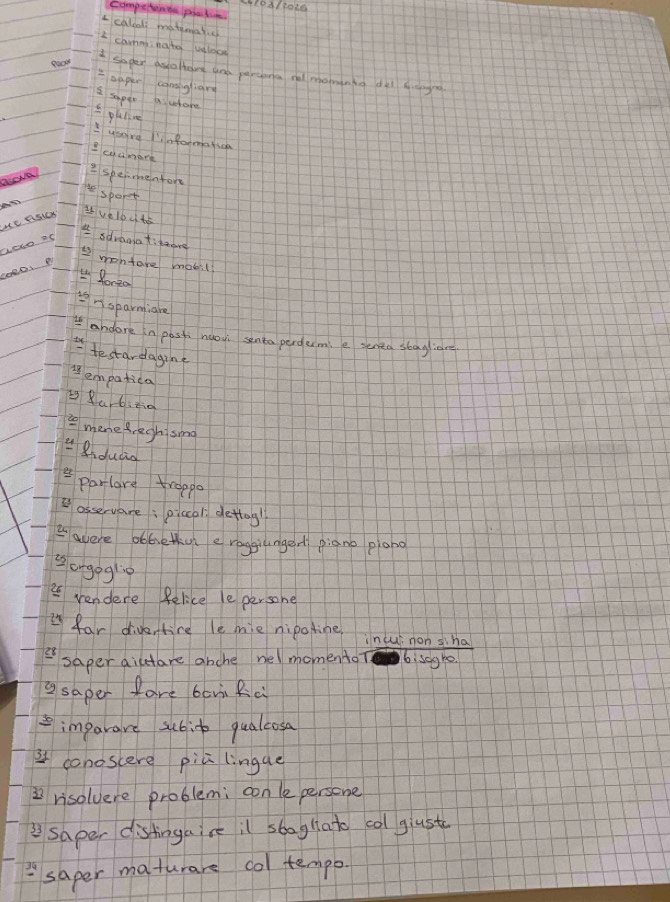 competenze positive
1 calcoli matematici
2 camminata veloce
3 saper ascoltare una persona nel momento del bisogno
4 saper consigliare
5 saper aiutare
6 pulire
7 usare l'informatica
8 cucinare
9 sperimentare
10 sport
11 velocità
12 sdramatizzare
13 montare mobili
14 forza
15 risparmiare
16 andare in posti nuovi senza perdermi e senza sbagliare
17 testardagine
18 empatica
19 furbizia
20 menefreghismo
21 fiducia
22 parlare troppo
23 osservare i piccoli dettagli
24 avere obbiettivi e raggiungerli piano piano
25 orgoglio
26 rendere felice le persone
27 far divertire le mie nipotine
28 saper aiutare anche nel momento in cui non si ha bisogno.
29 saper fare bonifici
30 imparare subito qualcosa
31 conoscere più lingue
32 risolvere problemi con le persone
33 saper distinguire il sbagliato col giusto
34 saper maturare col tempo.